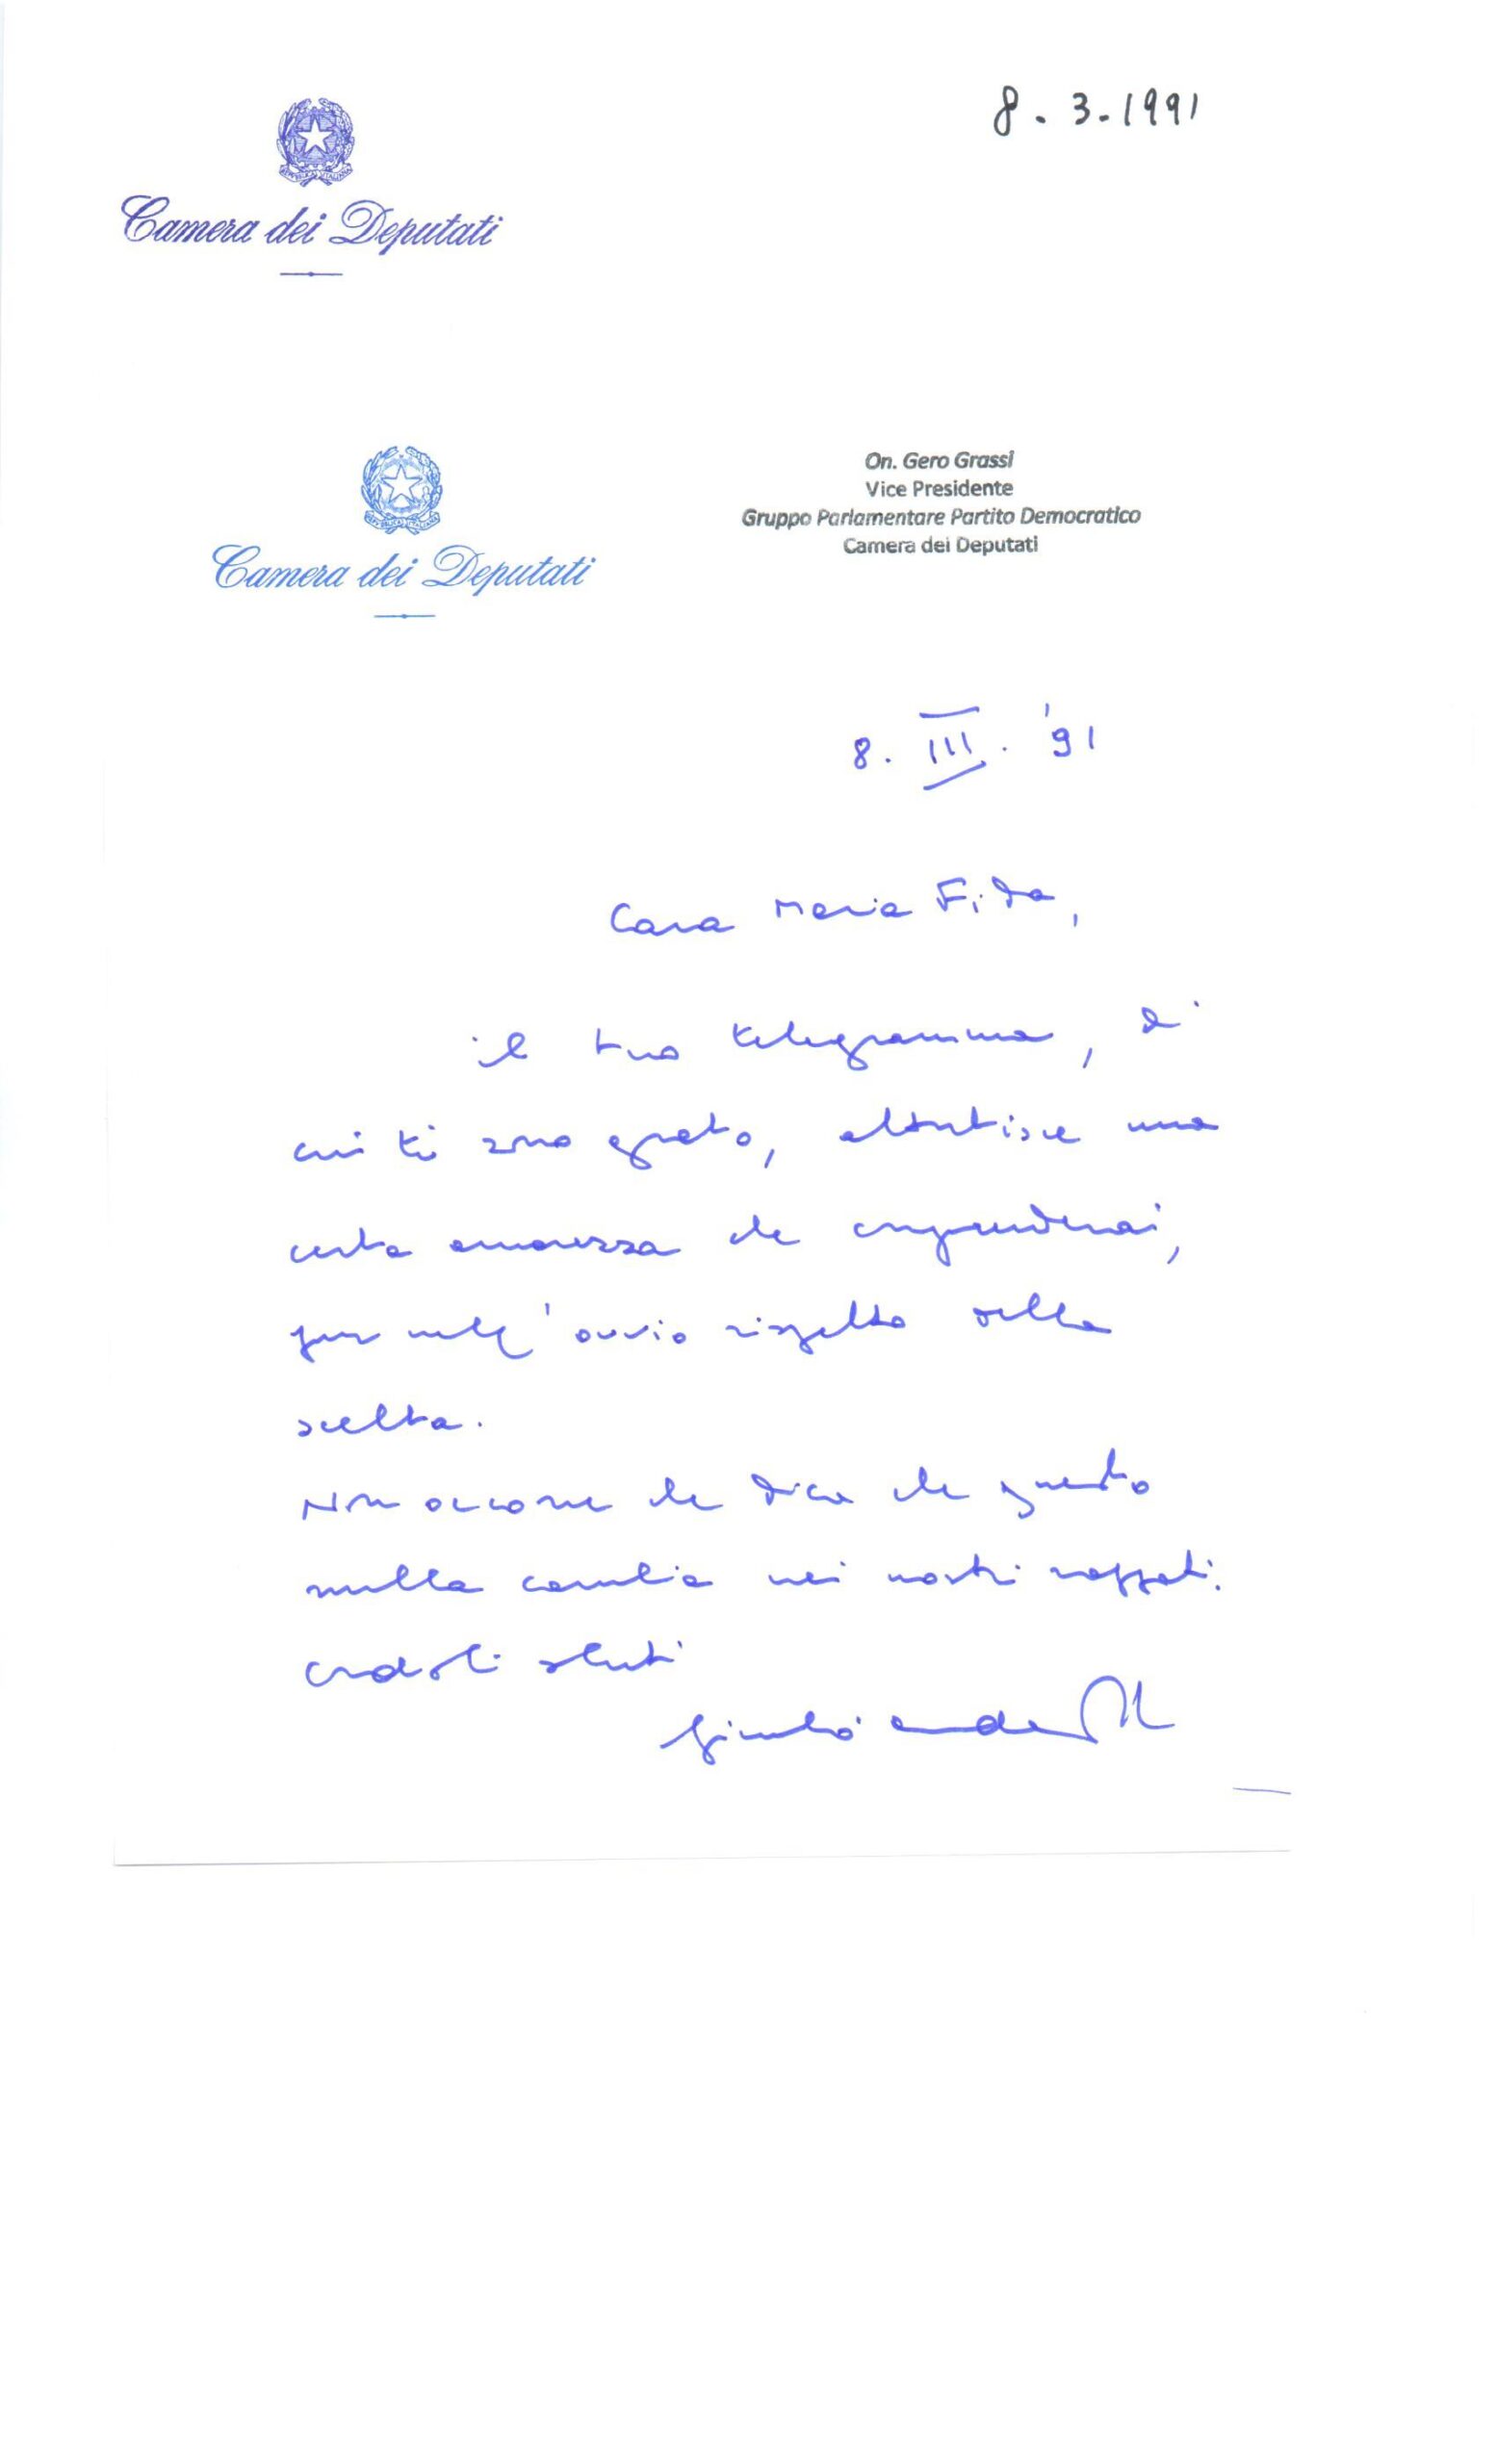 8. 3. 1991
REPVBBLICA ITALIANA
Camera dei Deputati
On. Gero Grassi
Vice Presidente
Gruppo Parlamentare Partito Democratico
Camera dei Deputati
REPVBBLICA ITALIANA
Camera dei Deputati
8. III. '91
Cara Maria Fida,
il tuo telegramma, di
cui ti sono grato, attutisce una
certa amarezza che comprenderai,
pur nell'ovvio rispetto della
scelta.
Non occorre che dica che questo
nulla cambia nei nostri rapporti.
Cordiali saluti
Giulio Andreotti